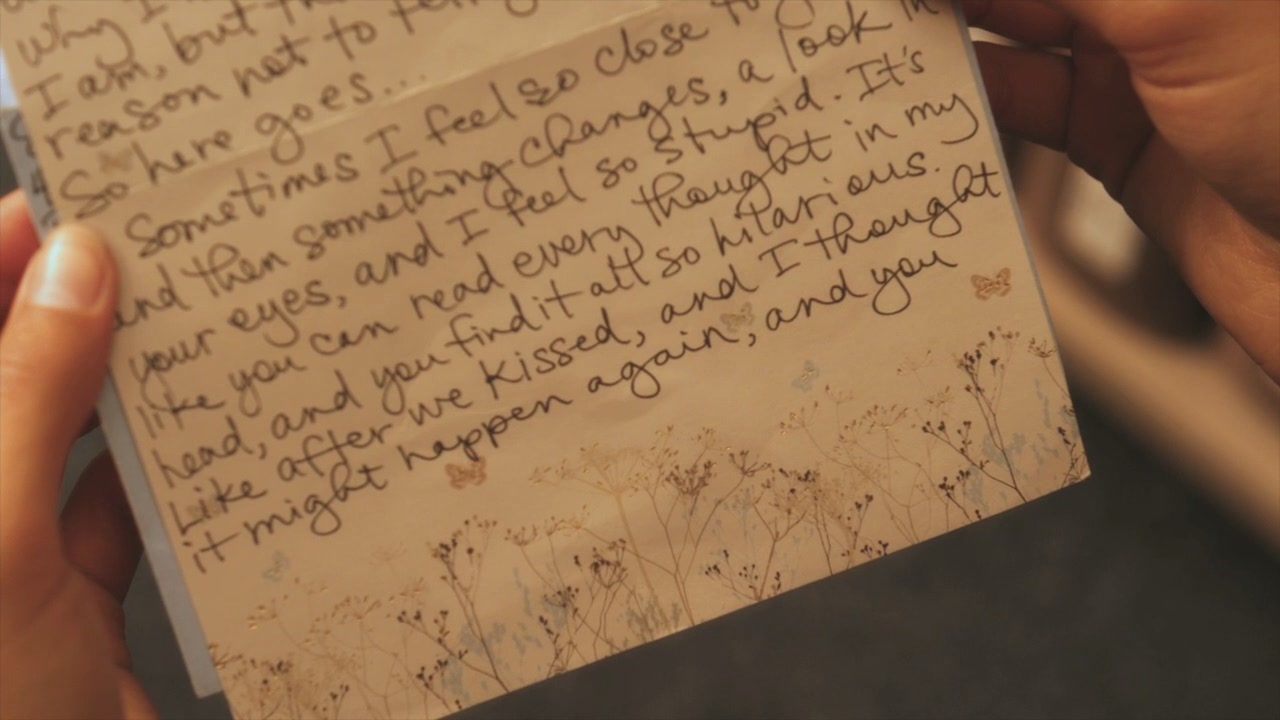 why I
I am, but th
reason not to tell
So here goes...
Sometimes I feel so close to y
and then something changes, a look in
your eyes, and I feel so stupid. It's
like you can read every thought in my
head, and you find it all so hilarious.
Like after we kissed, and I thought
it might happen again, and you